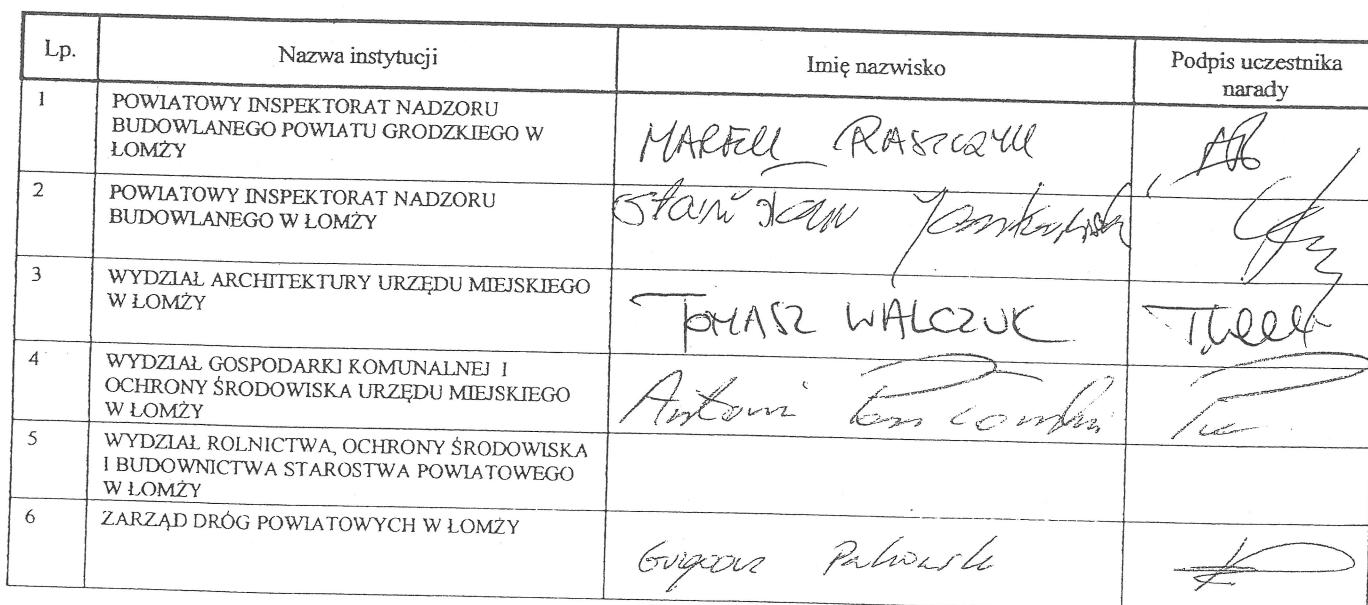 Lp. Nazwa instytucji Imię nazwisko Podpis uczestnika
narady
1 POWIATOWY INSPEKTORAT NADZORU
BUDOWLANEGO POWIATU GRODZKIEGO W
ŁOMŻY
MAREK RASZCZYK
2 POWIATOWY INSPEKTORAT NADZORU
BUDOWLANEGO W ŁOMŻY
Stanisław
3 WYDZIAŁ ARCHITEKTURY URZĘDU MIEJSKIEGO
W ŁOMŻY
TOMASZ WALCZUK
4 WYDZIAŁ GOSPODARKI KOMUNALNEJ I
OCHRONY ŚRODOWISKA URZĘDU MIEJSKIEGO
W ŁOMŻY
Antoni
5 WYDZIAŁ ROLNICTWA, OCHRONY ŚRODOWISKA
I BUDOWNICTWA STAROSTWA POWIATOWEGO
W ŁOMŻY
6 ZARZĄD DRÓG POWIATOWYCH W ŁOMŻY
Grzegorz